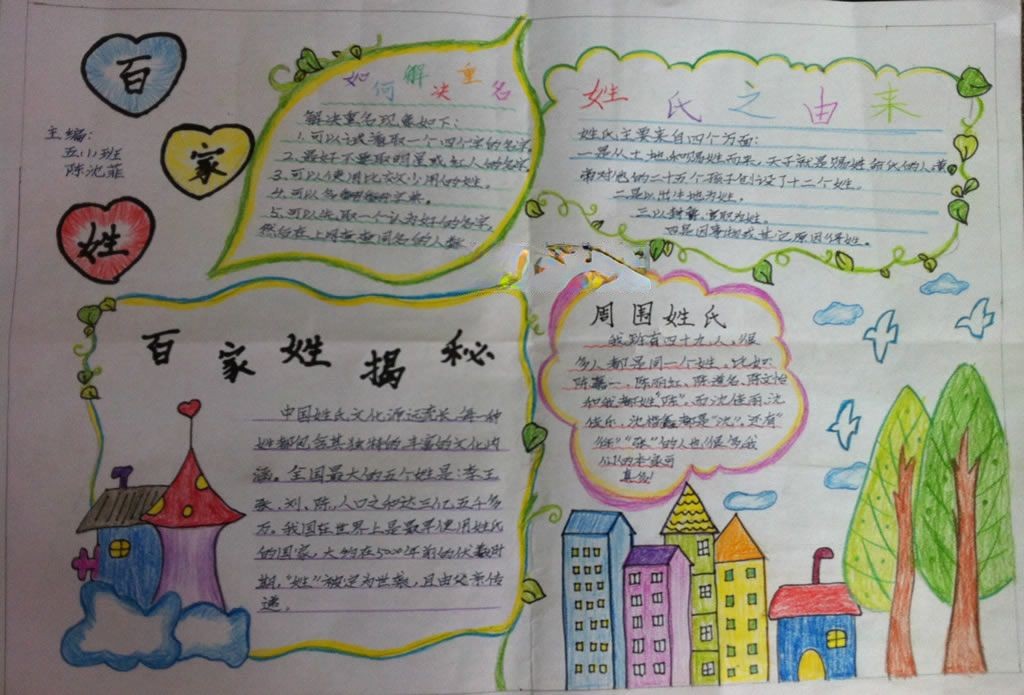 百
家
姓
主编:
五(1)班
陈沈菲
如何解决重名
解决重名现象如下:
1.可以试着取一个四个字的名字
2.最好不要取明星或红人的名字
3.可以使用比较少用的姓。
4.可以多
5.可以先取一个认为好的名字
然后在上网查查同名的人数
姓氏之由来
姓氏主要来自四个方面:
一是从土地和赐姓而来,天子就是赐姓命氏的人,黄
帝对他的二十五个孩子创设了十二个姓。
二是以出生地为姓。
三以封爵、官职为姓。
四是因事物或其它原因得姓。
百家姓揭秘
中国姓氏文化源远流长,每一种
姓都包含其独特的丰富的文化内
涵。全国最大的五个姓是:李、王
张、刘、陈,人口之和达三亿五千多
万。我国在世界上是最早使用姓氏
的国家,大约在5000年前的伏羲时
期,"姓"被定为世袭,且由父亲传
递。
周围姓氏
我班有四十九人,很
多人都是同一个姓。比如
陈嘉一、陈丽虹、陈
和我都姓"陈"。而沈佳雨、沈
沈楷鑫都是"沈"。还有
"张"的人也很多,我
真多!